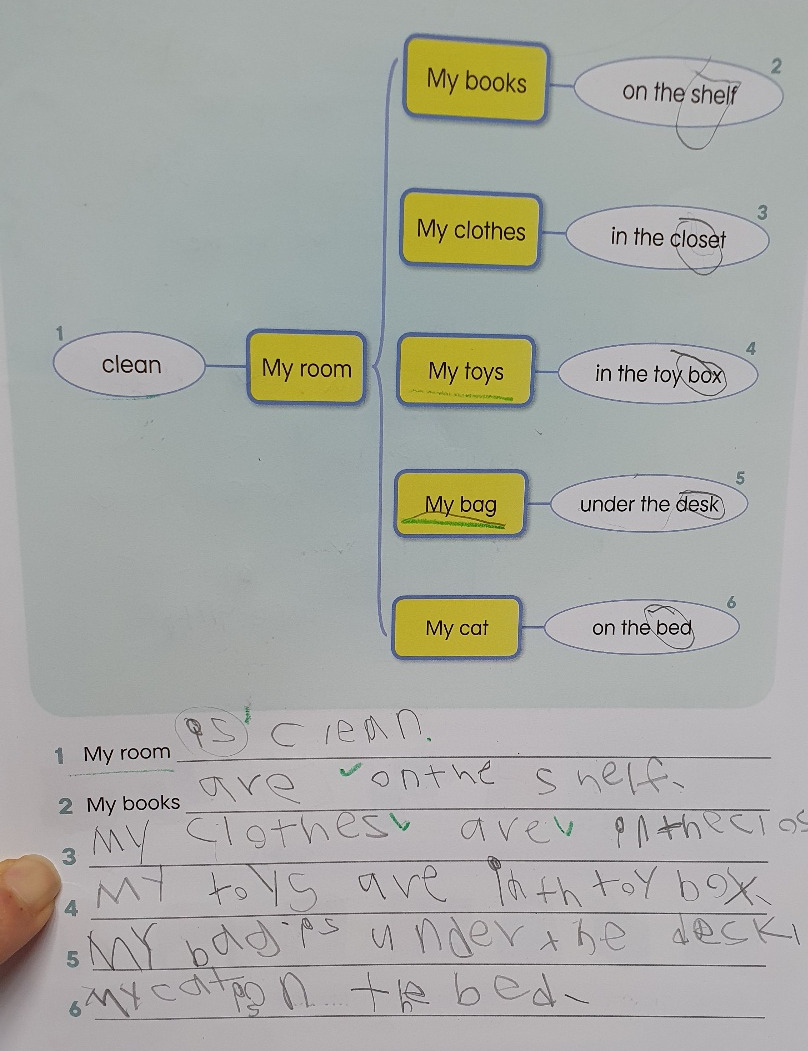 2
My books
on the shelf
3
My clothes
in the closet
1
clean
My room
4
My toys
in the toy box
5
My bag
under the desk
6
My cat
on the bed
1 My room is clean.
2 My books are on the shelf.
3 My clothes are in the clos
4 My toys are in th toy box.
5 My bag is under the desk.
6 My cat is on the bed.